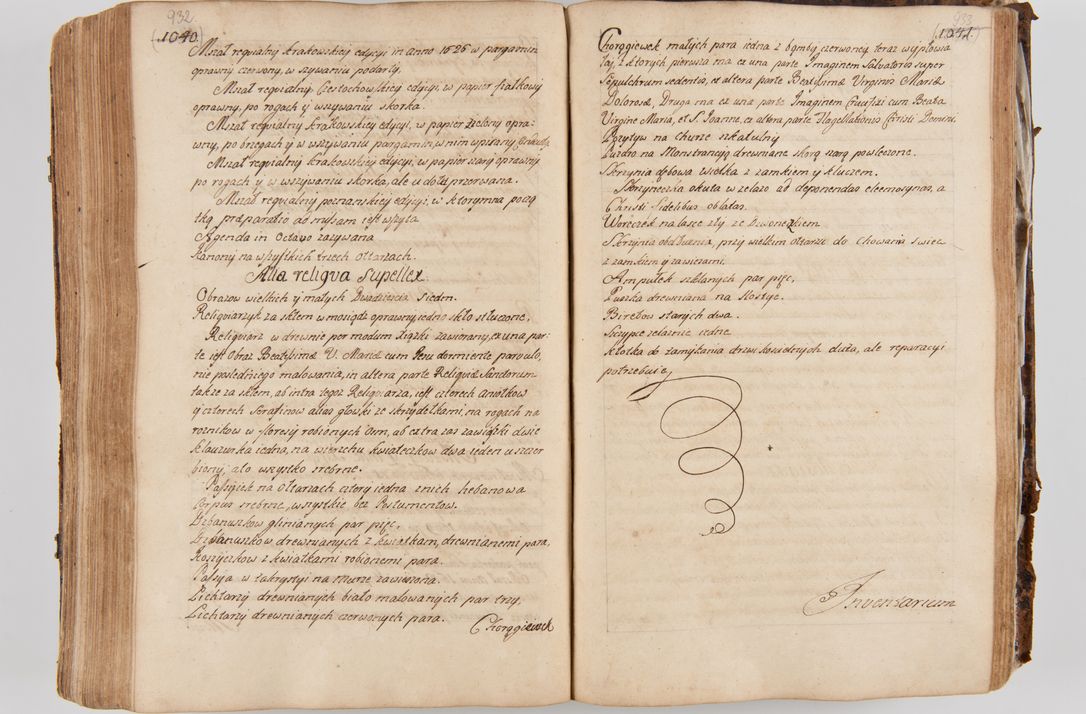 932.
(1040.)
Mszał reguialny krakowskiej edycyi in anno 1626 w pargamin
oprawny czerwony, w szywaniu podarty.
Mszał reguialny Częstochowskiej edycyi, w papier fiałkowy
oprawny, po rogach y wszywaniu skorka.
Mszał reguialny krakowskiej edycyi, w papier zielony opra-
wny, po brzegach y w wszywaniu pargamin, w nim wpisany
Mszał reguialny krakowskiej edycyi, w papier szary oprawny
po rogach y w wszywaniu skorka, ale u dołu przerwana.
Mszał reguialny poznanskiej edycyi, w ktorym na począ
tku præparatio ad missam iest wszyta
Agenda in Octavo zazywana
Kanony na wszystkich trzech Ołtarzach.
Alia reliqua Supellex.
Obrazow wielkich y małych Dwadziescia Siedm.
Religuiarzyk za skłem w mosiądz oprawny, iedno skło stłuczone.
Religuiarz w drewnie per modum xiązki zawierany, ex una par-
te iest Obraz Beatissimæ V. Mariæ cum Jesu dormiente parvulo,
nie posledniego malowania, in altera parte Religuiæ Sanctorum
takze za skłem, ab intra tegoz Religuiarza, iest czterech Aniołkow
y czterech Serafinow alias głowki ze skrzydełkami, na rogach na
roznikow w floresy robionych Osm, ab extra zas zawiązki dwie
klauzurka iedna, na wierzchu kwiateczkow dwa ieden uszczer
biony, a to wszystko srebrne.
Passyiek na Ołtarzach cztery iedna z nich hebanowa
Corpus srebrne, wszystkie bez Postumentow.
Dzbanuszkow glinianych par pięc,
Dzbanuszkow drewnianych z kwiatkam, drewnianemi para,
Koszyczkow z kwiatkami robionemi para.
Passyja w zakrystyi na murze zawieszona.
Lichtarzy drewnianych biało malowanych par trzy,
Lichtarzy drewnianych czerwonych para.
Chorągiewek
933
(1041.)
Chorągiewek małych para iedna z bomby czerwoney teraz wypłowia
łey, z ktorych pierwsza ma ex una parte Imaginem Salvatoris super
Sepulchrum sedentis, ex altera parte Beatissimæ Virginis Mariæ
Dolorosæ, Druga ma ex una parte Imaginem Crucifixi cum Beata
Virgine Maria, et S. Joanne, ex altera parte Flagellationis Christi Domini.
Pozytyw na churze szkatulny
Puzdro na Monstrancyją drewniane skorą szarą powleczone.
Skrzynia dębowa wielka z zamkiem y kluczem.
Skrzyneczka okuta w zelazo ad deponendas eleemosynas, a
Christi Fidelibus oblatas.
Woreczek na lasce zły ze Dzwonezkiem
Skrzynia obadwuzna, przy wielkim Ołtarzu do chowania swiec
z zamkiem y zawiesami.
Ampułek szklanych par pięc,
Puszka drewniana na Hostye.
Biretow starych dwa.
Szczypce zelazne iedne
Kłotka do zamykania drzwi koscielnych duża, ale reparacyi
potrzebuie,
Inventarium